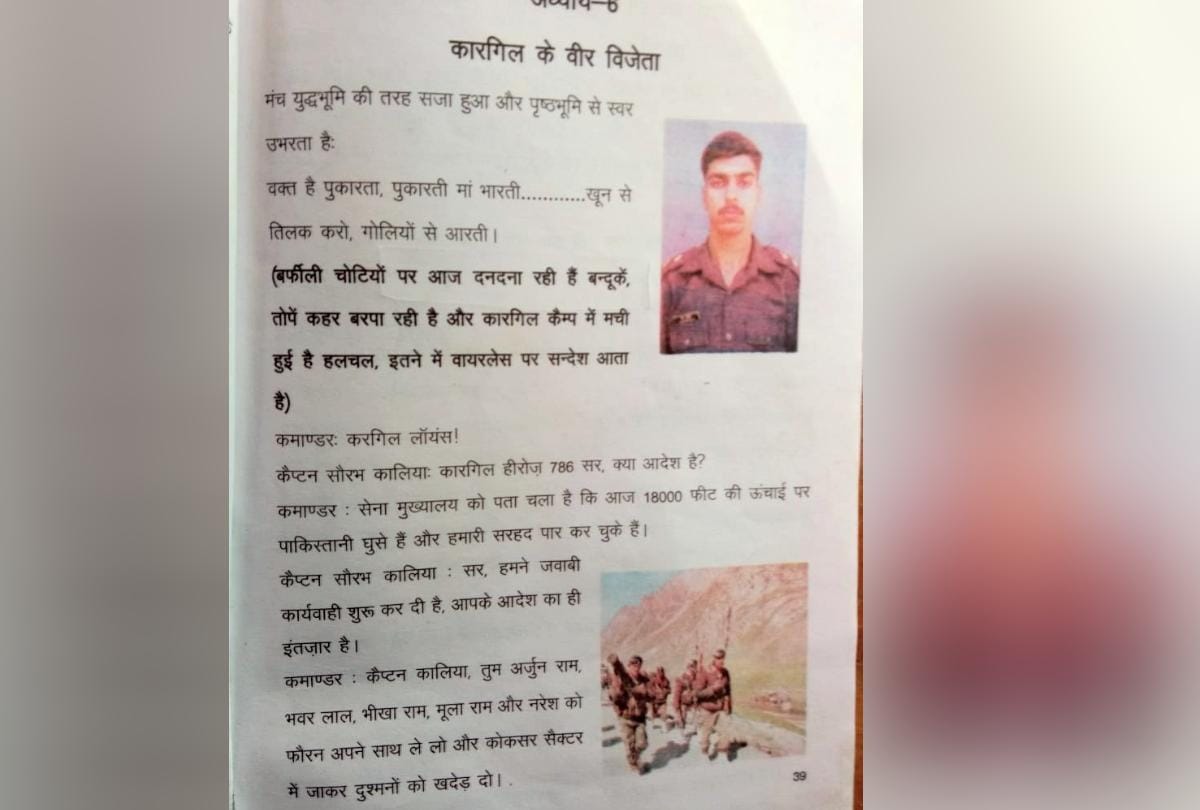 अध्याय–6
कारगिल के वीर विजेता
मंच युद्धभूमि की तरह सजा हुआ और पृष्ठभूमि से स्वर
उभरता हैः
वक्त है पुकारता, पुकारती मां भारती............खून से
तिलक करो, गोलियों से आरती।
(बर्फीली चोटियों पर आज दनदना रही हैं बन्दूकें,
तोपें कहर बरपा रही है और कारगिल कैम्प में मची
हुई है हलचल, इतने में वायरलेस पर सन्देश आता
है)
कमाण्डरः करगिल लॉयंस!
कैप्टन सौरभ कालियाः कारगिल हीरोज़ 786 सर, क्या आदेश है?
कमाण्डर : सेना मुख्यालय को पता चला है कि आज 18000 फीट की ऊंचाई पर
पाकिस्तानी घुसे हैं और हमारी सरहद पार कर चुके हैं।
कैप्टन सौरभ कालिया : सर, हमने जवाबी
कार्यवाही शुरू कर दी है, आपके आदेश का ही
इंतज़ार है।
कमाण्डर : कैप्टन कालिया, तुम अर्जुन राम,
भवर लाल, भीखा राम, मूला राम और नरेश को
फौरन अपने साथ ले लो और कोकसर सैक्टर
में जाकर दुश्मनों को खदेड़ दो।
39